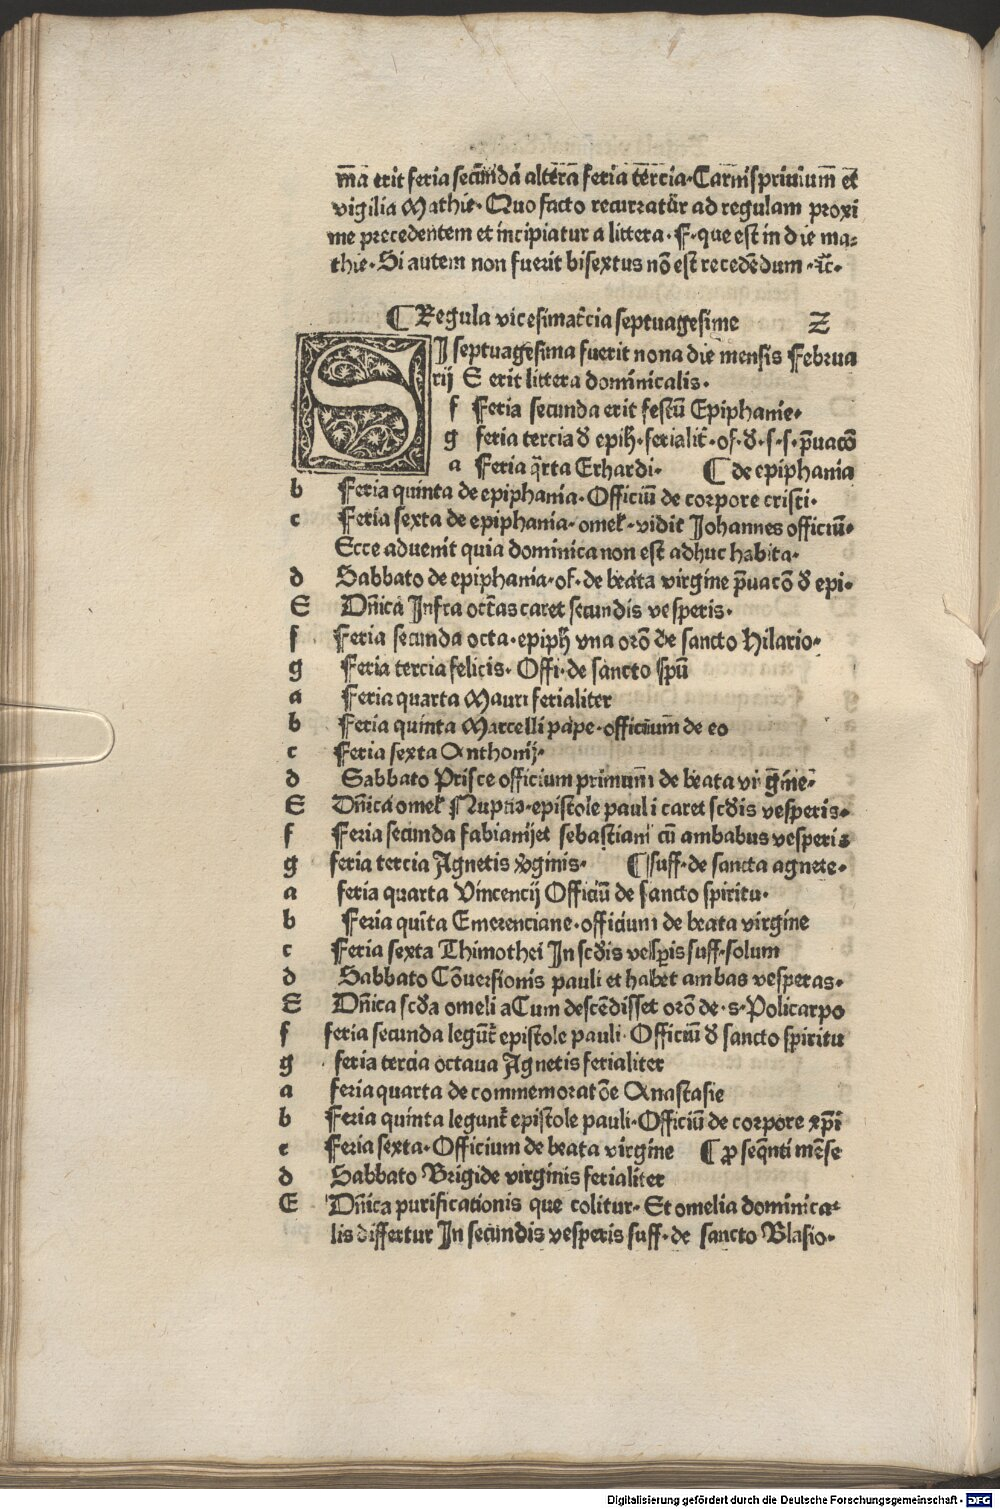 m̄a erit feria secūdā alterā feria tercia. Carnispriuium et
vigilia Mathie. Quo facto recurratur ad regulam proxi
me precedentem et incipiatur a littera. F. que est in die ma⸗
thie. Si autem non fuerit bisextus nō est recedēdum. ꝛc̄.
¶ Regula vicesimat̄cia septuagesime Z
SI septuagesima fuerit nona die mensis Februa
rij E erit littera dominicalis.
f Feria secunda erit festū Epiphanie.
g feria tercia ꝺ epiħ. ferialit̄. of. ꝺ. s. s. p̄uacō
a Feria q̄rta Erhardi. ¶ de epiphania
b Feria quinta de epiphania. Officiū de corpore cristi.
c Feria sexta de epiphania. omel̄. vidit Johannes officiū.
Ecce aduenit quia dominica non est adhuc habita.
d Sabbato de epiphania. of. de beata virgine p̄uacō ꝺ epi.
E Dn̄ica Infra oct̄as caret secundis vesperis.
f Feria secunda octa. epiph̄ vna orō de sancto Hilario.
g Feria tercia felicis. Offi. de sancto sp̄u
a Feria quarta Mauri ferialiter
b Feria quinta Marcelli pape. officium de eo
c Feria sexta Anthonij.
d Sabbato Prisce officium primum de beata virgine.
E Dn̄ica omel̄ Nuptie. epistole pauli caret scd̄is vesperis.
f Feria secunda fabiani et sebastiani cū ambabus vesperis
g feria tercia Agnetis v̄ginis. ¶ suff. de sancta agnete.
a feria quarta Vincencij Officiū de sancto spiritu.
b Feria quīta Emerenciane. officium de beata virgine
c Feria sexta Thimothei In scd̄is vesꝑis suff. solum
d Sabbato Cōuersionis pauli et habet ambas vesperas.
E Dn̄ica scd̄a omeli a Cum descēdisset orō de. s. Policarpo
f feria secunda legūt̄ epistole pauli. Officiū ꝺ sancto spiritu
g feria tercia octaua Agnetis ferialiter
a feria quarta de commemoratōe Anastasie
b Feria quinta legunt̄ epistole pauli. Officiū de corpore xp̄i
c Feria sexta. Officium de beata virgine ¶ ꝓ seq̄nti mēse
d Sabbato Brigide virginis ferialiter
E Dn̄ica purificationis que colitur. Et omelia dominica⸗
lis differtur In secundis vesperis suff. de sancto Blasio.
Digitalisierung gefördert durch die Deutsche Forschungsgemeinschaft - DFG